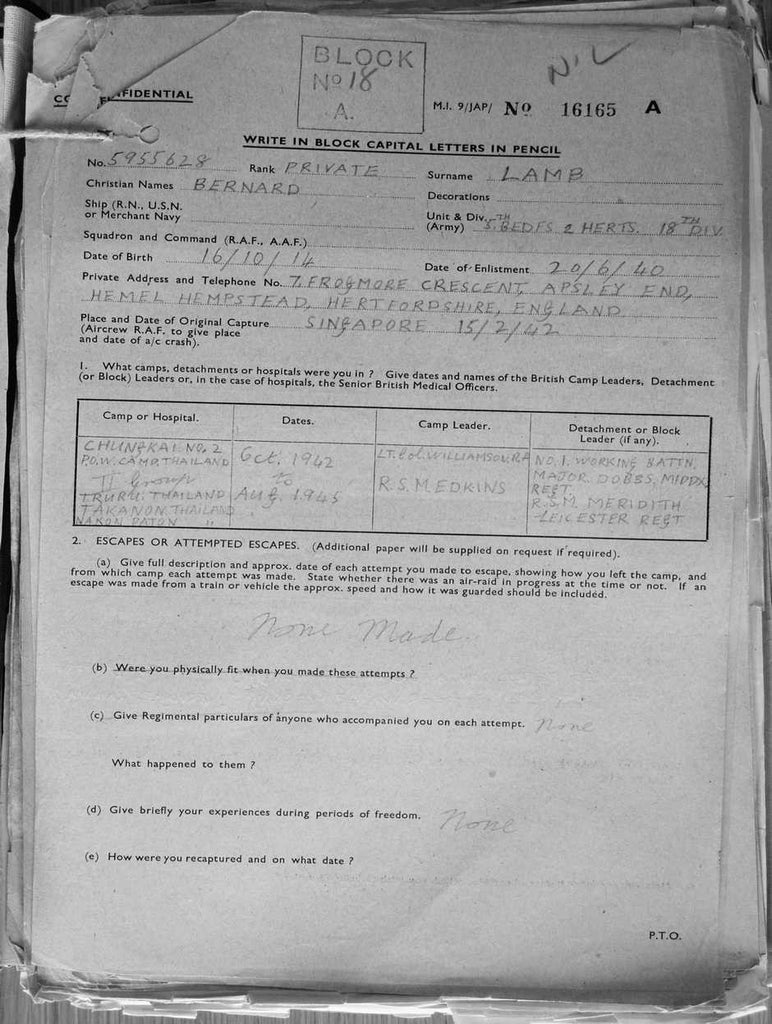 BLOCK
No 18
A.
NIL
CONFIDENTIAL
M.I. 9/JAP/ No 16165 A
WRITE IN BLOCK CAPITAL LETTERS IN PENCIL
No. 5955628 Rank PRIVATE Surname LAMB
Christian Names BERNARD Decorations
Ship (R.N., U.S.N. or Merchant Navy
Unit & Div. (Army) 5TH BEDFS & HERTS. 18TH DIV
Squadron and Command (R.A.F., A.A.F.)
Date of Birth 16/10/14 Date of Enlistment 20/6/40
Private Address and Telephone No. 7, FROGMORE CRESCENT, APSLEY END,
HEMEL HEMPSTEAD, HERTFORDSHIRE, ENGLAND
Place and Date of Original Capture SINGAPORE 15/2/42
(Aircrew R.A.F. to give place
and date of a/c crash).
1. What camps, detachments or hospitals were you in ? Give dates and names of the British Camp Leaders, Detachment
(or Block) Leaders or, in the case of hospitals, the Senior British Medical Officers.
Camp or Hospital. Dates. Camp Leader. Detachment or Block Leader (if any).
CHUNGKAI NO. 2
P.O.W. CAMP, THAILAND
II Group
TRURU. THAILAND
TAKANON. THAILAND
NAKON PATON "
Oct. 1942
to
AUG. 1945
LT. Col. WILLIAMSON. RA
R.S.M EDKINS
NO. 1. WORKING BATTN.
MAJOR DOBBS, MIDDX
REGT.
R.S.M. MERIDITH
LEICESTER REGT
2. ESCAPES OR ATTEMPTED ESCAPES. (Additional paper will be supplied on request if required).
(a) Give full description and approx. date of each attempt you made to escape, showing how you left the camp, and
from which camp each attempt was made. State whether there was an air-raid in progress at the time or not. If an
escape was made from a train or vehicle the approx. speed and how it was guarded should be included.
None Made.
(b) Were you physically fit when you made these attempts ?
(c) Give Regimental particulars of anyone who accompanied you on each attempt. None
What happened to them ?
(d) Give briefly your experiences during periods of freedom. None
(e) How were you recaptured and on what date ?
P.T.O.